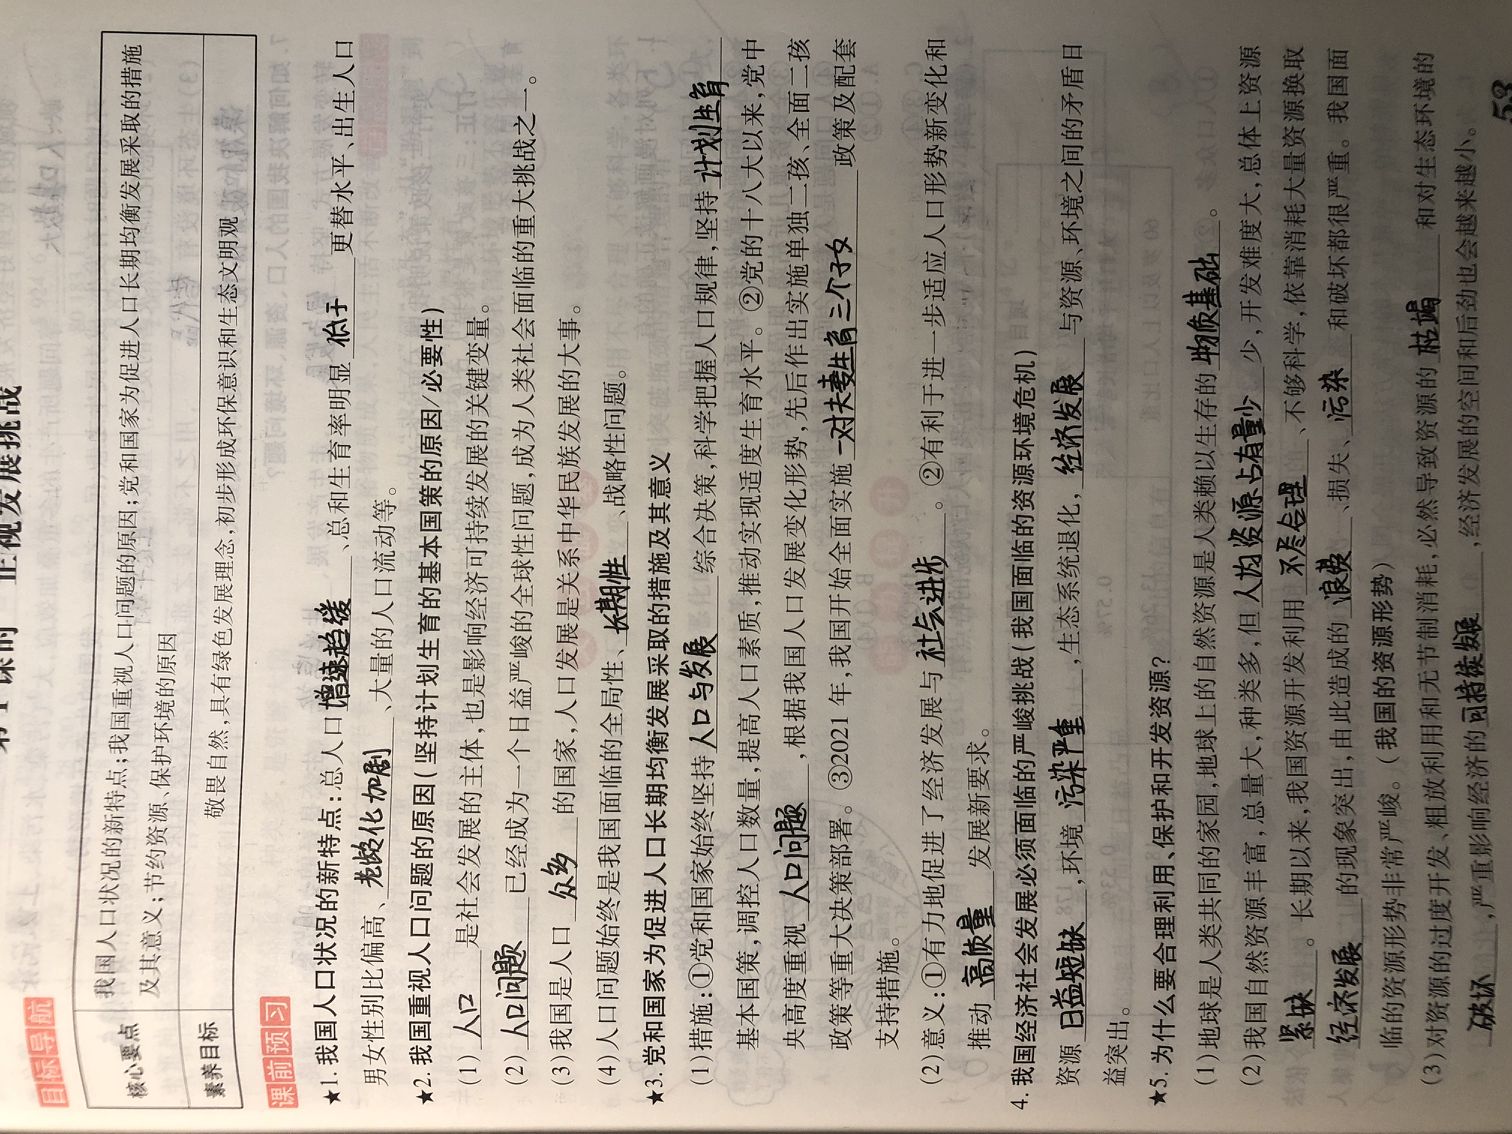 第1课时 正视发展挑战
目标导航
核心要点
我国人口状况的新特点;我国重视人口问题的原因;党和国家为促进人口长期均衡发展采取的措施
及其意义;节约资源、保护环境的原因
素养目标
敬畏自然,具有绿色发展理念,初步形成环保意识和生态文明观
课前预习
★1.我国人口状况的新特点:总人口增速趋缓、总和生育率明显低于更替水平、出生人口
男女性别比偏高、老龄化加剧、大量的人口流动等。
★2.我国重视人口问题的原因(坚持计划生育的基本国策的原因/必要性)
(1)人口是社会发展的主体,也是影响经济可持续发展的关键变量。
(2)人口问题已经成为一个日益严峻的全球性问题,成为人类社会面临的重大挑战之一。
(3)我国是人口众多的国家,人口发展是关系中华民族发展的大事。
(4)人口问题始终是我国面临的全局性、长期性、战略性问题。
★3.党和国家为促进人口长期均衡发展采取的措施及其意义
(1)措施:①党和国家始终坚持人口与发展综合决策,科学把握人口规律,坚持计划生育
基本国策,调控人口数量,提高人口素质,推动实现适度生育水平。②党的十八大以来,党中
央高度重视人口问题,根据我国人口发展变化形势,先后作出实施单独二孩、全面二孩
政策等重大决策部署。③2021年,我国开始全面实施一对夫妻生育三个子女政策及配套
支持措施。
(2)意义:①有力地促进了经济发展与社会进步。②有利于进一步适应人口形势新变化和
推动高质量发展新要求。
4.我国经济社会发展必须面临的严峻挑战(我国面临的资源环境危机)
资源日益短缺,环境污染严重,生态系统退化,经济发展与资源、环境之间的矛盾日
益突出。
★5.为什么要合理利用、保护和开发资源?
(1)地球是人类共同的家园,地球上的自然资源是人类赖以生存的物质基础。
(2)我国自然资源丰富,总量大,种类多,但人均资源占有量少少,开发难度大,总体上资源
紧缺。长期以来,我国资源开发利用不尽合理、不够科学,依靠消耗大量资源换取
经济发展的现象突出,由此造成的浪费、损失、污染和破坏都很严重。我国面
临的资源形势非常严峻。(我国的资源形势)
(3)对资源的过度开发、粗放利用和无节制消耗,必然导致资源的枯竭和对生态环境的
破坏,严重影响经济的可持续发展,经济发展的空间和后劲也会越来越小。
53